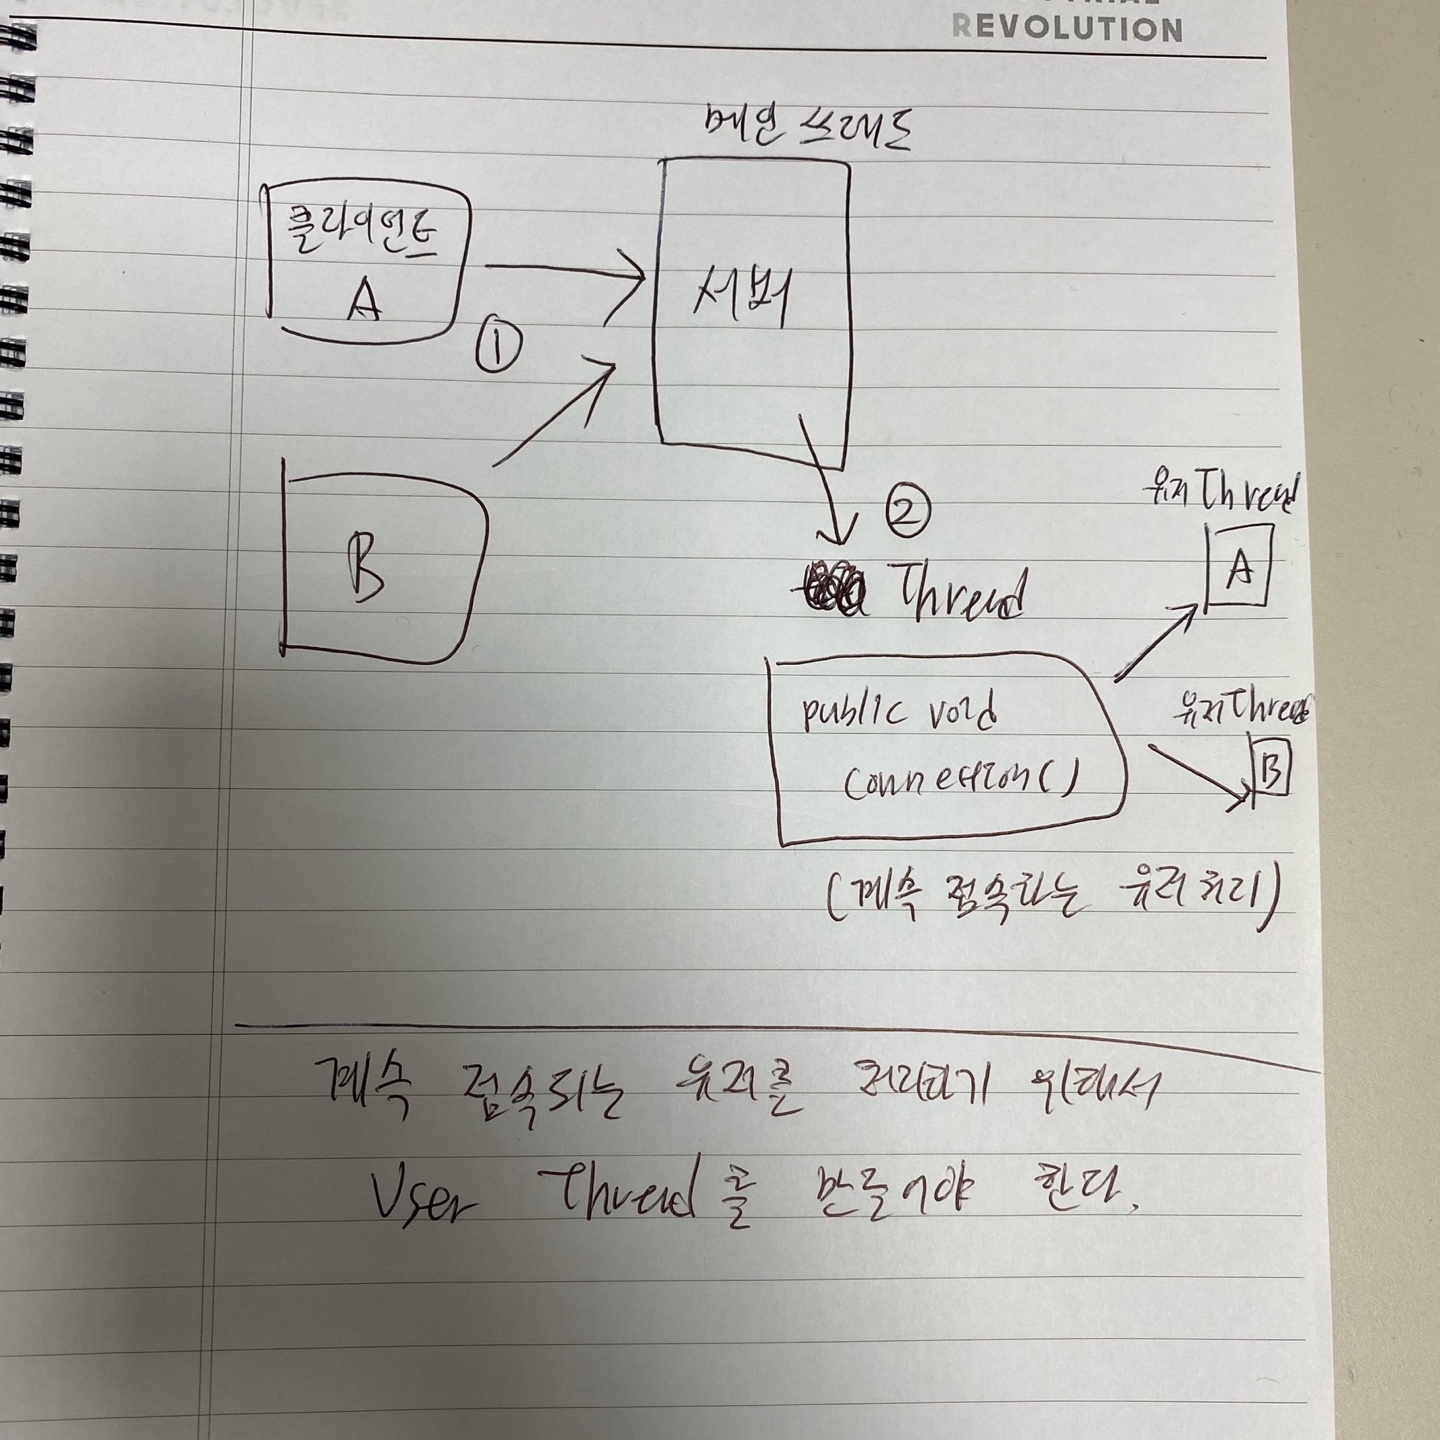 REVOLUTION
메인 쓰레드
클라이언트
A
서버
①
B
②
Thread
유저 Thread
A
public void
connection()
유저 Thread
B
(계속 접속하는 유저 처리)
계속 접속되는 유저를 처리하기 위해서
User Thread를 만들어야 한다.